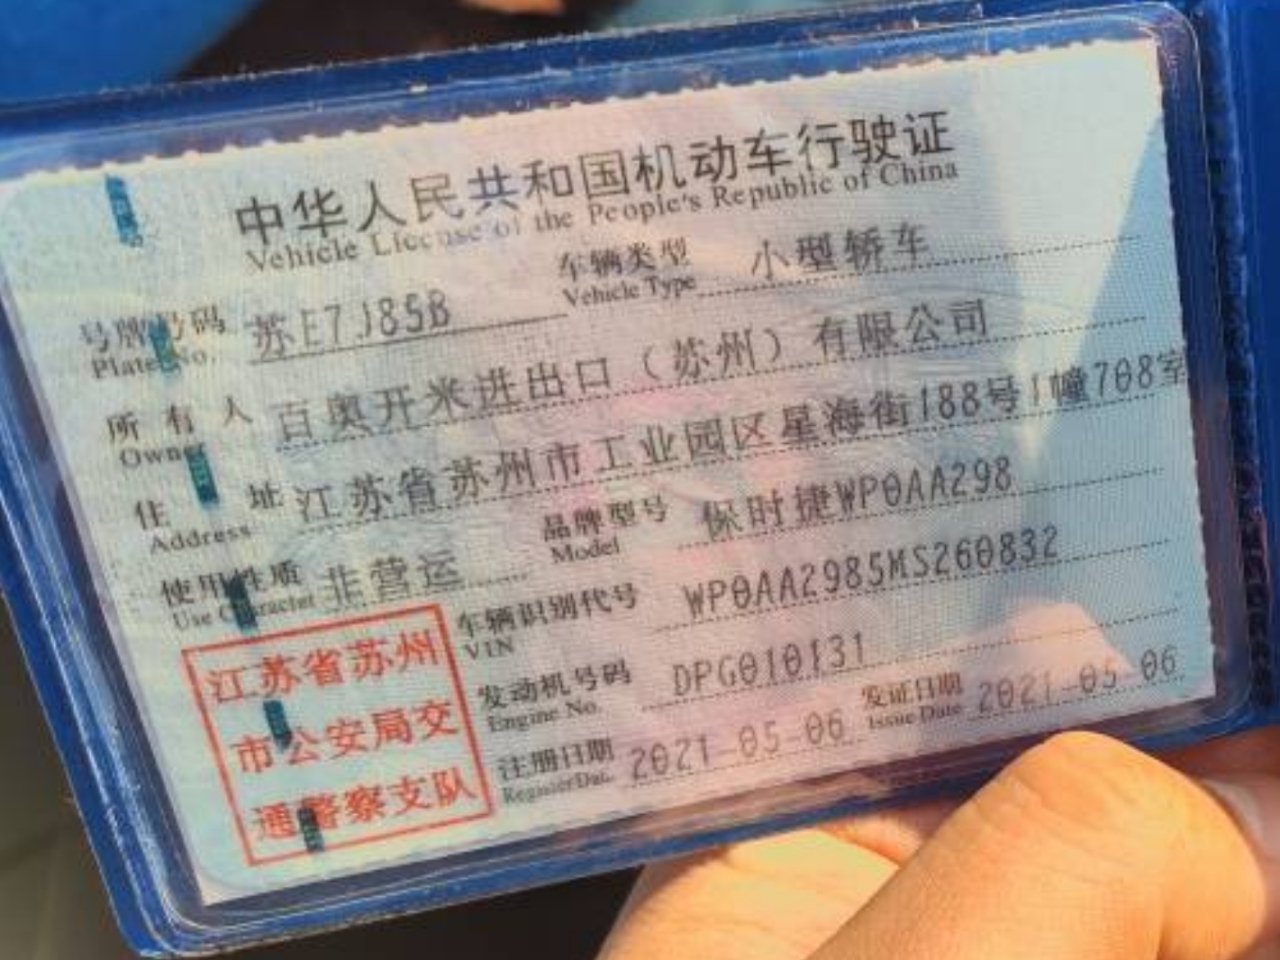 中华人民共和国机动车行驶证
Vehicle License of the People's Republic of China
号牌号码 苏E7J85B 车辆类型 小型轿车
Plate No. Vehicle Type
所有人 百奥开米进出口（苏州）有限公司
Owner
住址 江苏省苏州市工业园区星海街188号1幢708室
Address
使用性质 非营运 品牌型号 保时捷WP0AA298
Use Character Model
车辆识别代号 WP0AA2985MS260832
VIN
发动机号码 DPG010131
Engine No.
注册日期 2021-05-06 发证日期 2021-05-06
Register Date Issue Date
江苏省苏州
市公安局交
通警察支队